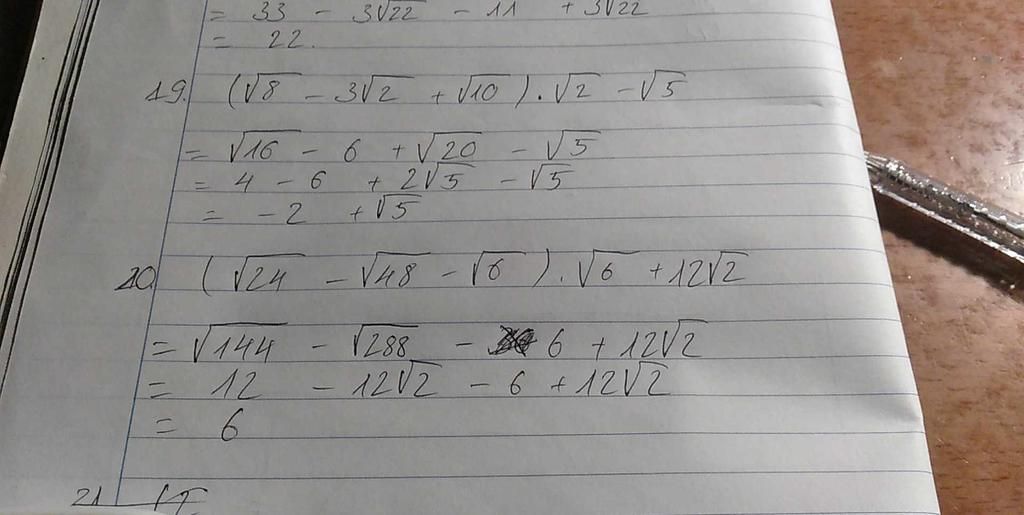 = 33 - 3√22 - 11 + 3√22
= 22.
19. (√8 - 3√2 + √10).√2 - √5
= √16 - 6 + √20 - √5
= 4 - 6 + 2√5 - √5
= -2 + √5
20. (√24 - √48 - √6).√6 + 12√2
= √144 - √288 - 6 + 12√2
= 12 - 12√2 - 6 + 12√2
= 6
21